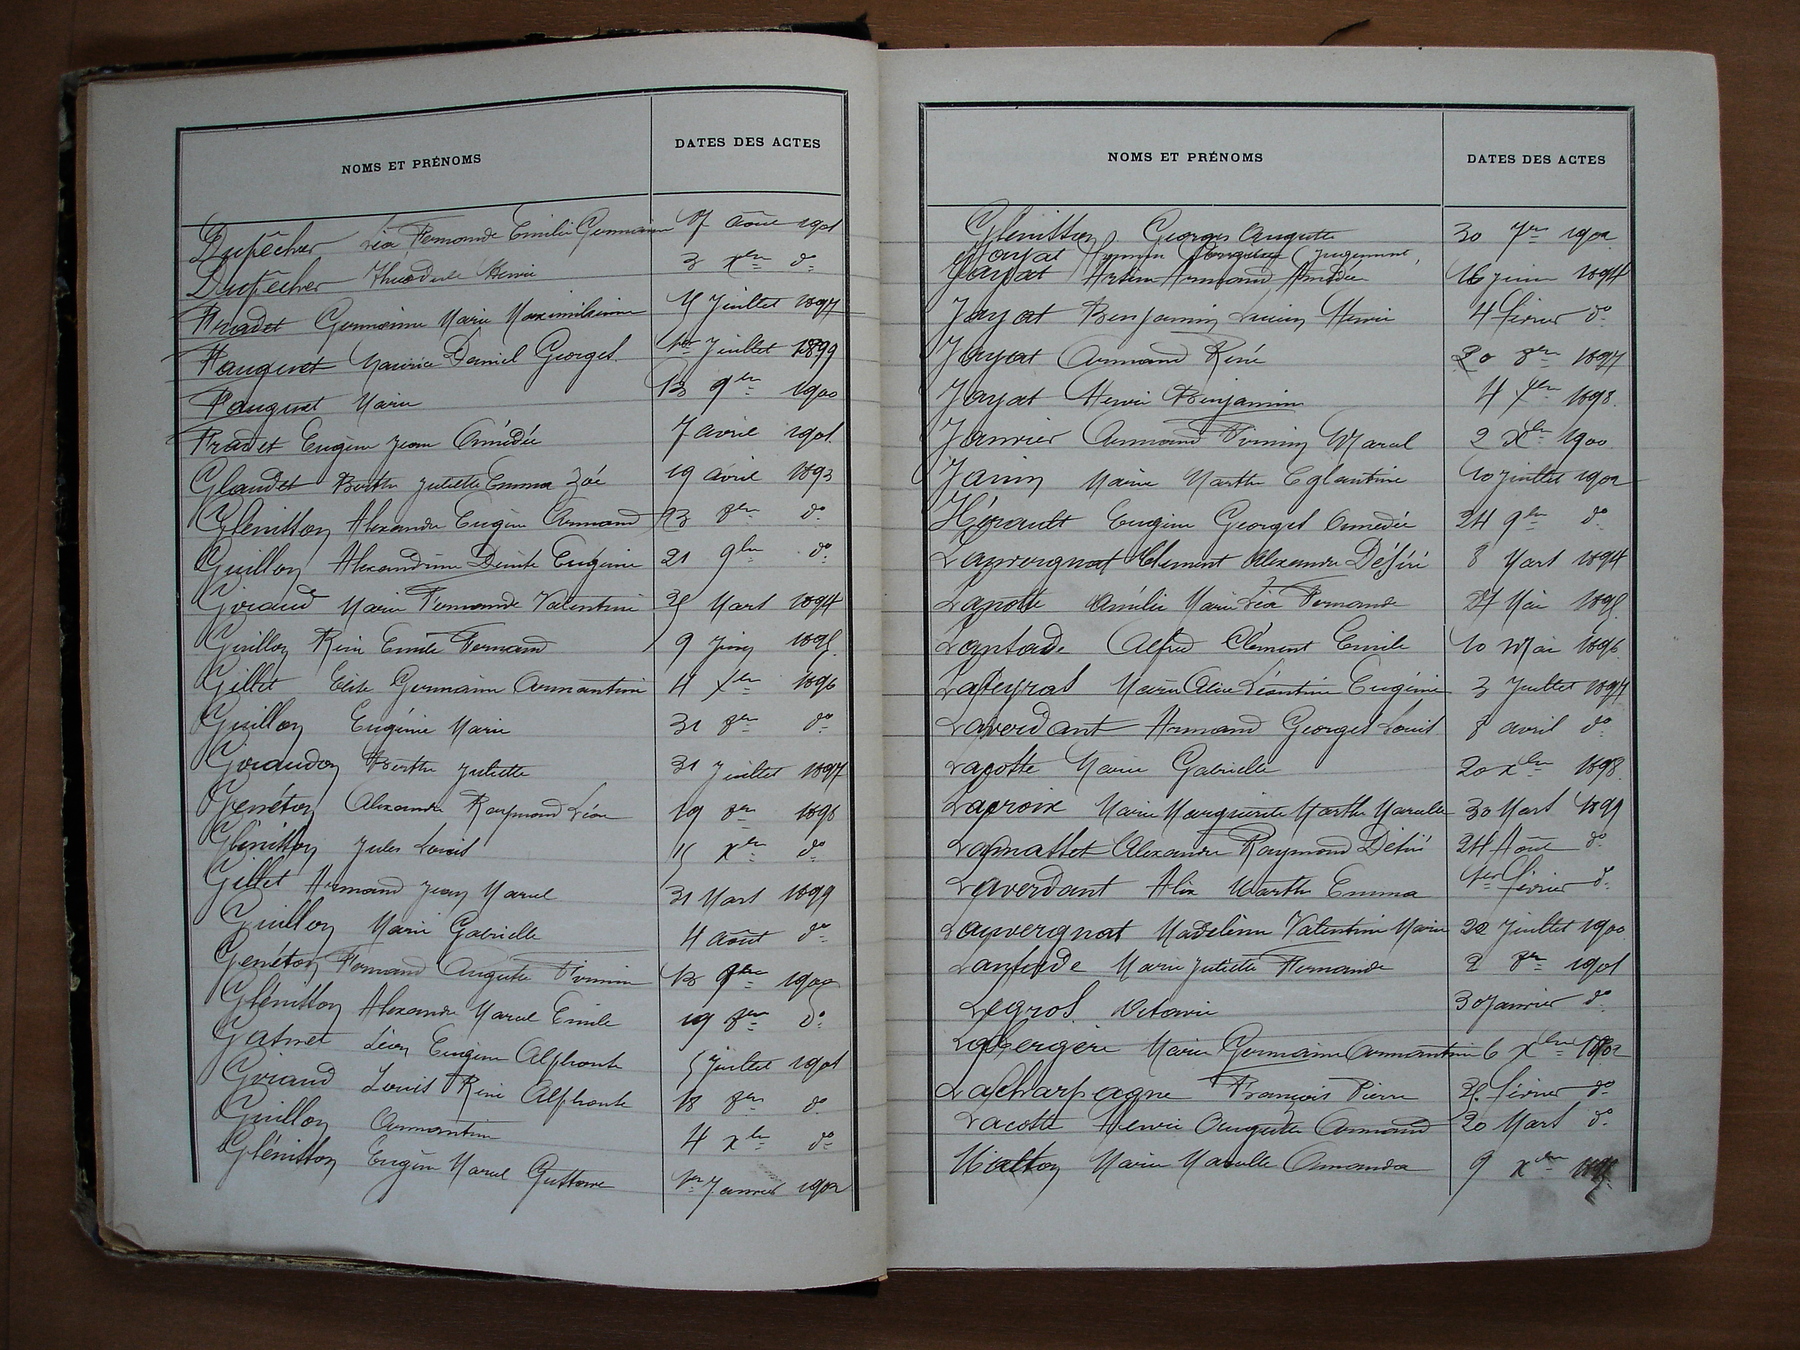 NOMS ET PRÉNOMS DATES DES ACTES
Dupêcher Léa Fernande Emilie Germaine 17 août 1901
Dupêcher Théodule Henri 3 xbre do
Fradet Germaine Marie Maximilienne 4 Juillet 1897
Fauquet Maurice Daniel Georges 1er Juillet 1899
Fauquet Marie 13 9bre 1900
Fradet Eugène Jean Amédée 7 avril 1901
Glaudet Berthe Juliette Emma Zoé 19 avril 1893
Glénisson Alexandre Eugène Armand 23 8bre do
Guillon Alexandrine Denise Eugénie 21 9bre do
Giraud Marie Fernande Valentine 25 Mars 1894
Guillon René Emile Fernand 9 Juin 1895
Gillet Elise Germaine Armantine 4 xbre 1896
Guillon Eugénie Marie 31 8bre do
Giraudon Berthe Juliette 31 Juillet 1897
Genéton Alexandre Raymond Léon 19 8bre 1898
Glénisson Jules Louis 15 xbre do
Gillet Armand Jean Marcel 31 Mars 1899
Guillon Marie Gabrielle 4 août do
Genéton Fernand Auguste Firmin 13 1900
Glénisson Alexandre Marcel Emile 19 8bre do
Léon Eugène Alphonse 5 Juillet 1901
Giraud Louis René Alphonse 18 8bre do
Guillon Armantine 4 xbre do
Glénisson Eugène Marcel Gustave 1er Janvier 1902
NOMS ET PRÉNOMS DATES DES ACTES
Glénisson Georges Auguste 30 7bre 1902
Jayat (Jugement)
Jayat Armand Amédée 16 Juin 1894
Jayat Benjamin Lucien Henri 4 février do
Jayat Armand René 20 8bre 1897
Jayat Henri Benjamin 4 1898
Janvier Armand Firmin Marcel 2 xbre 1900
Jamin Marie Marthe Eglantine 10 Juillet 1902
Hérault Eugène Georges Amédée 24 9bre do
Lauvergnat Clément Alexandre Désiré 8 Mars 1894
Lacotte Amélie Marie Léa Fernande 24 Mai 1895
Lantade Alfred Clément Emile 10 Mai 1896
Lafeyras Marie Alice Léontine Eugénie 3 Juillet 1897
Laverdant Armand Georges Louis 8 avril do
Lacotte Marie Gabrielle 20 xbre 1898
Lacroix Marie Marguerite Marthe Marcelle 30 Mars 1899
Alexandre Raymond Désiré 24 Août do
Laverdant Alix Marthe Emma 1er février do
Lauvergnat Madeleine Valentine Marie 22 Juillet 1900
Lantade Marie Juliette Fernande 2 8bre 1901
Legros Octavie 30 Janvier do
Labergère Marie Germaine Armantine 6 xbre 1902
Lacharpagne François Pierre février do
Lacotte Henri Auguste Armand 20 Mars do
Marie Marcelle Amanda 9 xbre